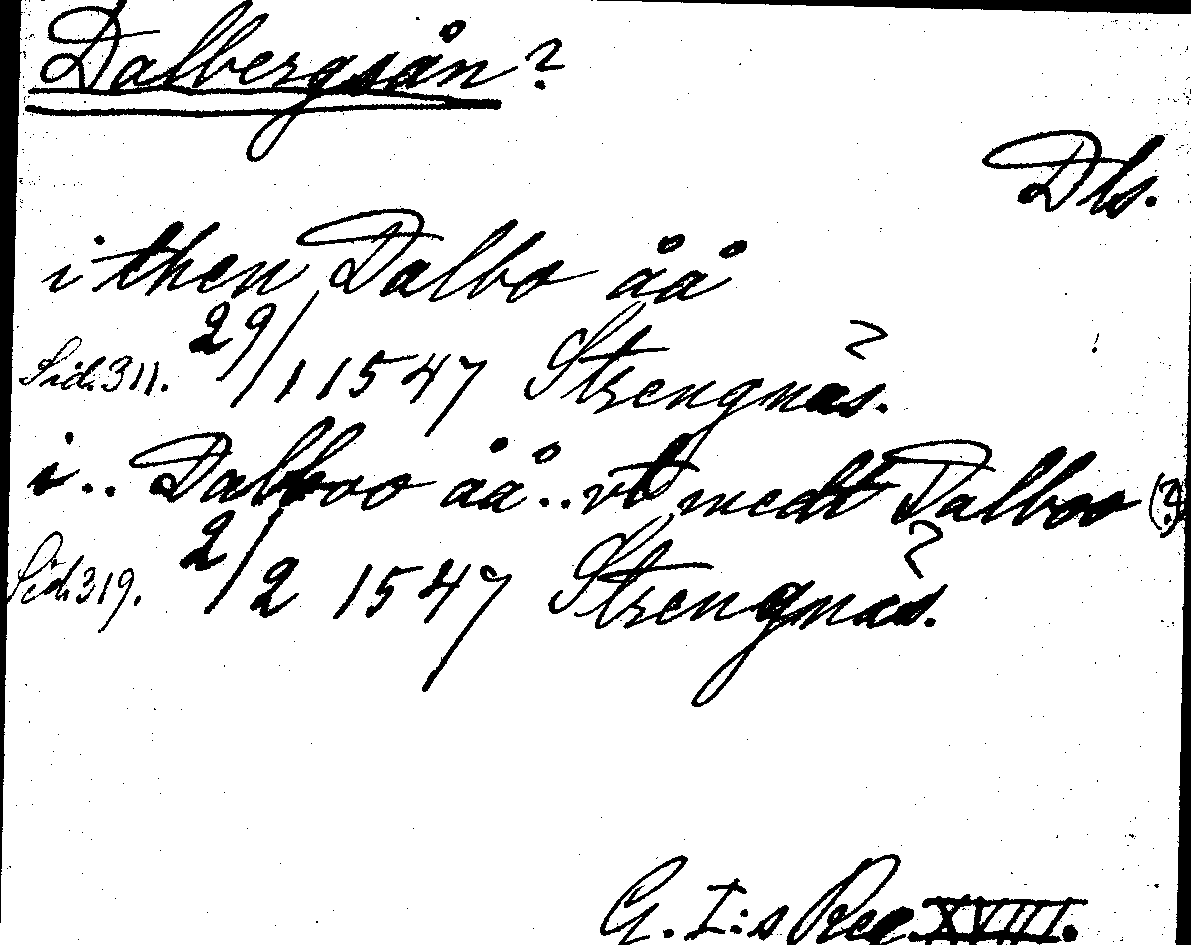 Dalbergsån?
Dls.
i then Dalbo åå
Sid. 311. 29/1 1547 Strengnäs. ?
i .. Dalboo åå .. vt medt Dalboo (?)
Sid. 319. 2/2 1547 Strengnäs. ?
G. I:s Reg. XVIII.